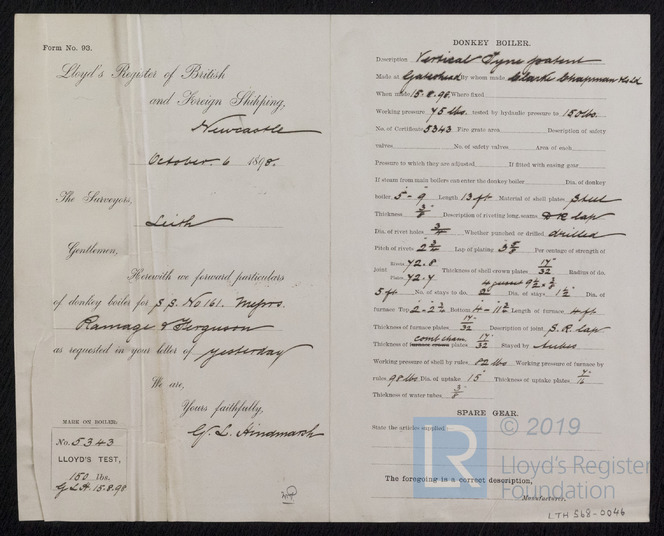 Form No. 93.
Lloyd's Register of British
and Foreign Shipping,
Newcastle
October 6 1898.
The Surveyors,
Leith
Gentlemen,
Herewith we forward particulars
of donkey boiler for S.S. No 161. Messrs.
Ramage & Ferguson
as requested in your letter of yesterday
We are,
Yours faithfully,
G. L. Hindmarsh
MADE ON BOILER:
No. 5343
LLOYD'S TEST,
150 lbs.
G.L.H. 15.8.98
DONKEY BOILER.
Description Vertical Tyne patent
Made at Gateshead By whom made Clarke Chapman & Co Ld
When made 15.8.98. Where fixed
Working pressure 75 lbs. tested by hydraulic pressure to 150 lbs.
No. of Certificate 5343 Fire grate area Description of safety
valves No. of safety valves Area of each
Pressure to which they are adjusted If fitted with easing gear
If steam from main boilers can enter the donkey boiler Dia. of donkey
boiler 5 - 9 Length 13 ft Material of shell plates Steel
Thickness 3/8" Description of riveting long. seams D R lap
Dia. of rivet holes 3/4" Whether punched or drilled drilled
Pitch of rivets 2 3/4" Lap of plating 3 5/8" Per centage of strength of
joint Rivets 72.8 Plates 72.7 Thickness of shell crown plates 17/32" Radius of do.
5 ft No. of stays to do. 4 gusset 9 1/2" x 3/8" Dia. of stays 1 1/2" Dia. of
furnace Top 2 - 2 3/4" Bottom 4 - 11 3/4" Length of furnace 4 ft
Thickness of furnace plates 17/32" Description of joint S.R. lap
Thickness of comb cham plates 17/32" Stayed by tubes
Working pressure of shell by rules 82 lbs Working pressure of furnace by
rules 98 lbs Dia. of uptake 15" Thickness of uptake plates 7/16"
Thickness of water tubes 3/8"
SPARE GEAR.
State the articles supplied
The foregoing is a correct description,
Manufacturer.
LR © 2019
Lloyd's Register
Foundation
LTH 568-0046